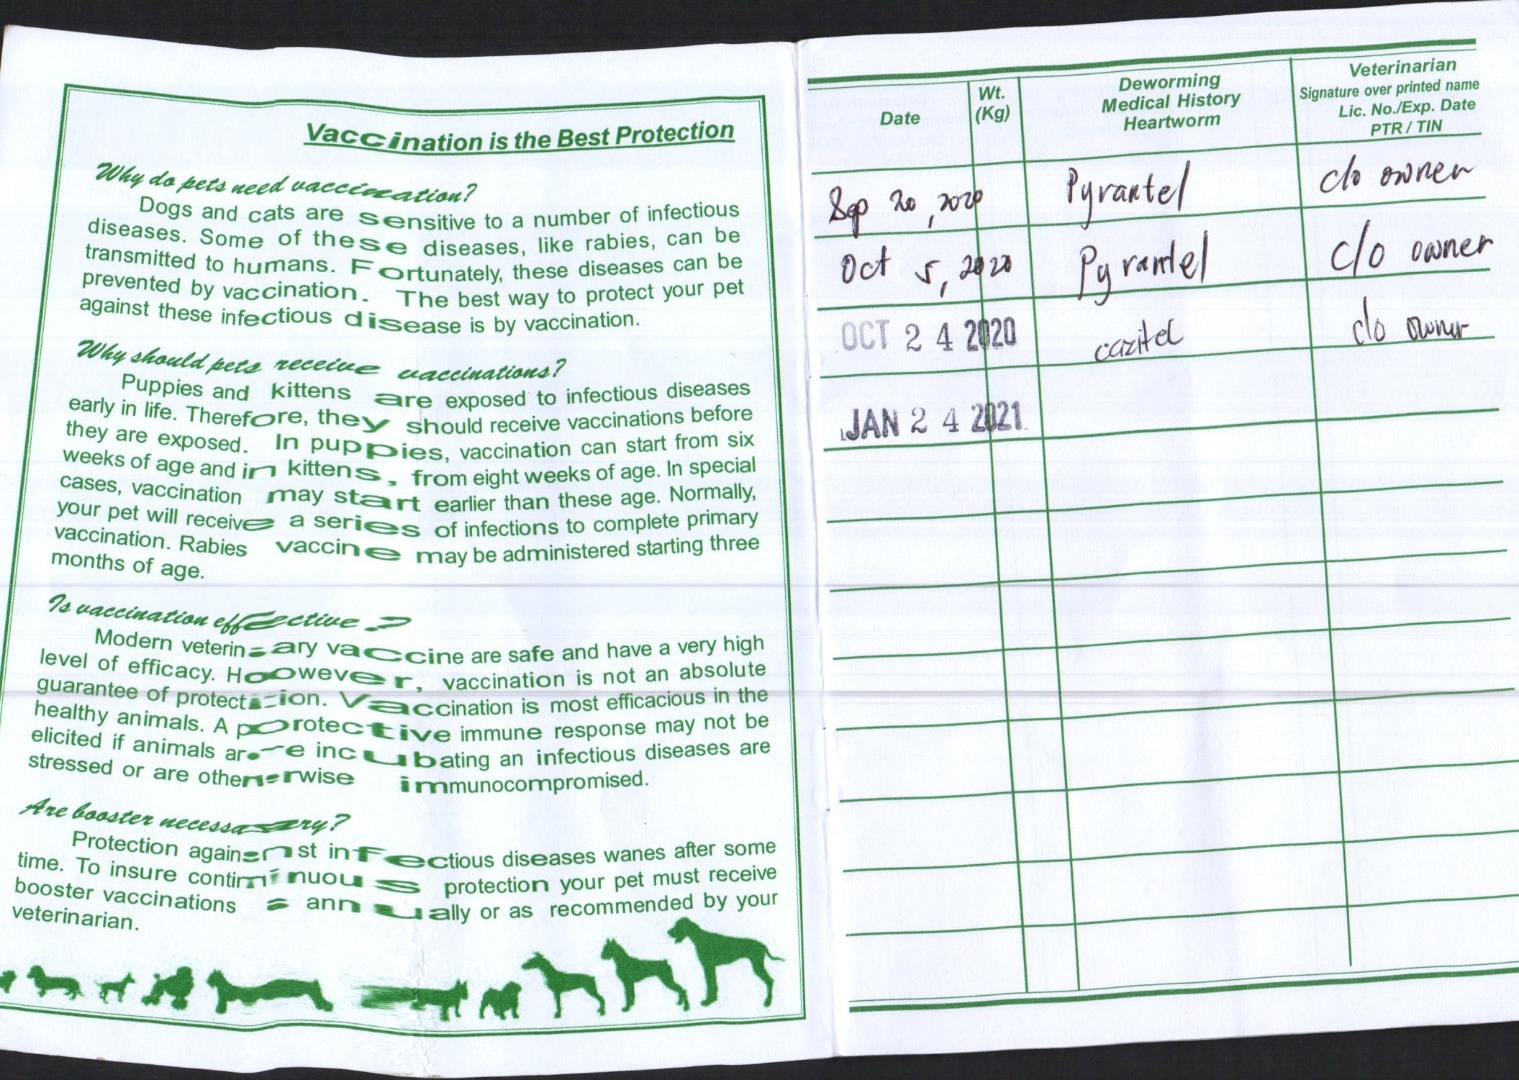 Vaccination is the Best Protection
Why do pets need vaccination?
Dogs and cats are sensitive to a number of infectious
diseases. Some of these diseases, like rabies, can be
transmitted to humans. Fortunately, these diseases can be
prevented by vaccination. The best way to protect your pet
against these infectious disease is by vaccination.
Why should pets receive vaccinations?
Puppies and kittens are exposed to infectious diseases
early in life. Therefore, they should receive vaccinations before
they are exposed. In puppies, vaccination can start from six
weeks of age and in kittens, from eight weeks of age. In special
cases, vaccination may start earlier than these age. Normally,
your pet will receive a series of infections to complete primary
vaccination. Rabies vaccine may be administered starting three
months of age.
Is vaccination effective ?
Modern veterinary vaccine are safe and have a very high
level of efficacy. However, vaccination is not an absolute
guarantee of protection. Vaccination is most efficacious in the
healthy animals. A protective immune response may not be
elicited if animals are incubating an infectious diseases are
stressed or are otherwise immunocompromised.
Are booster necessary?
Protection against infectious diseases wanes after some
time. To insure continuous protection your pet must receive
booster vaccinations annually or as recommended by your
veterinarian.
Date
Wt.
(Kg)
Deworming
Medical History
Heartworm
Veterinarian
Signature over printed name
Lic. No./Exp. Date
PTR / TIN
Sep 20, 2020 Pyrantel c/o owner
Oct 5, 2020 Pyrantel c/o owner
OCT 24 2020 cazitel c/o owner
JAN 24 2021